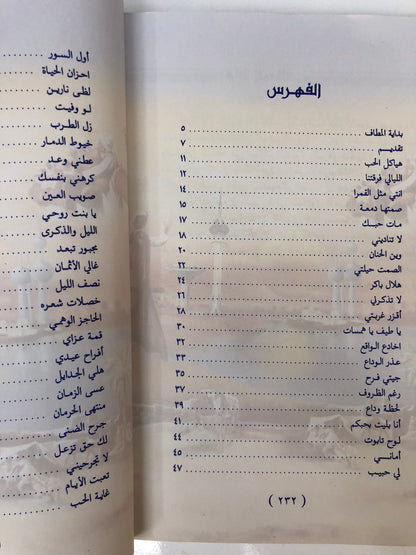 الفهرس
بداية المطاف ٥
تقديم ٧
هياكل الحب ١١
الليالي فرقتنا ١٢
انتي مثل القمرا ١٤
صمتها دمعة ١٥
مات حبك ١٧
لا تناديني ١٨
وين الحنان ٢٠
الصمت حيلتي ٢٢
هلال باكر ٢٤
لا تذكرني ٢٦
أقزر غربتي ٢٨
يا طيف يا همسات ٣٠
اخادع الواقع ٣٢
عذر الوداع ٣٣
جيتي فرح ٣٥
رغم الظروف ٣٧
لحظة وداع ٣٩
أنا بليت بحبكم ٤١
لوح تابوت ٤٤
أماني ٤٥
لي حبيب ٤٧
( ٢٣٢ )
أول السور
احزان الحياة
لظى نارين
لو وفيت
زل الطرب
خيوط الدمار
عطني وعد
كرهني بنفسك
صويب العين
يا بنت روحي
الليل والذكرى
مجبور تبعد
غالي الأثمان
نصف الليل
خصلات شعره
الحاجز الوهمي
قمة عزاي
أفراح عيدي
هلي الجدايل
عسى الزمان
منتهى الحرمان
جرح الضنى
لك حق تزعل
لا تجرحيني
تعبت الأيام
غاية الحب